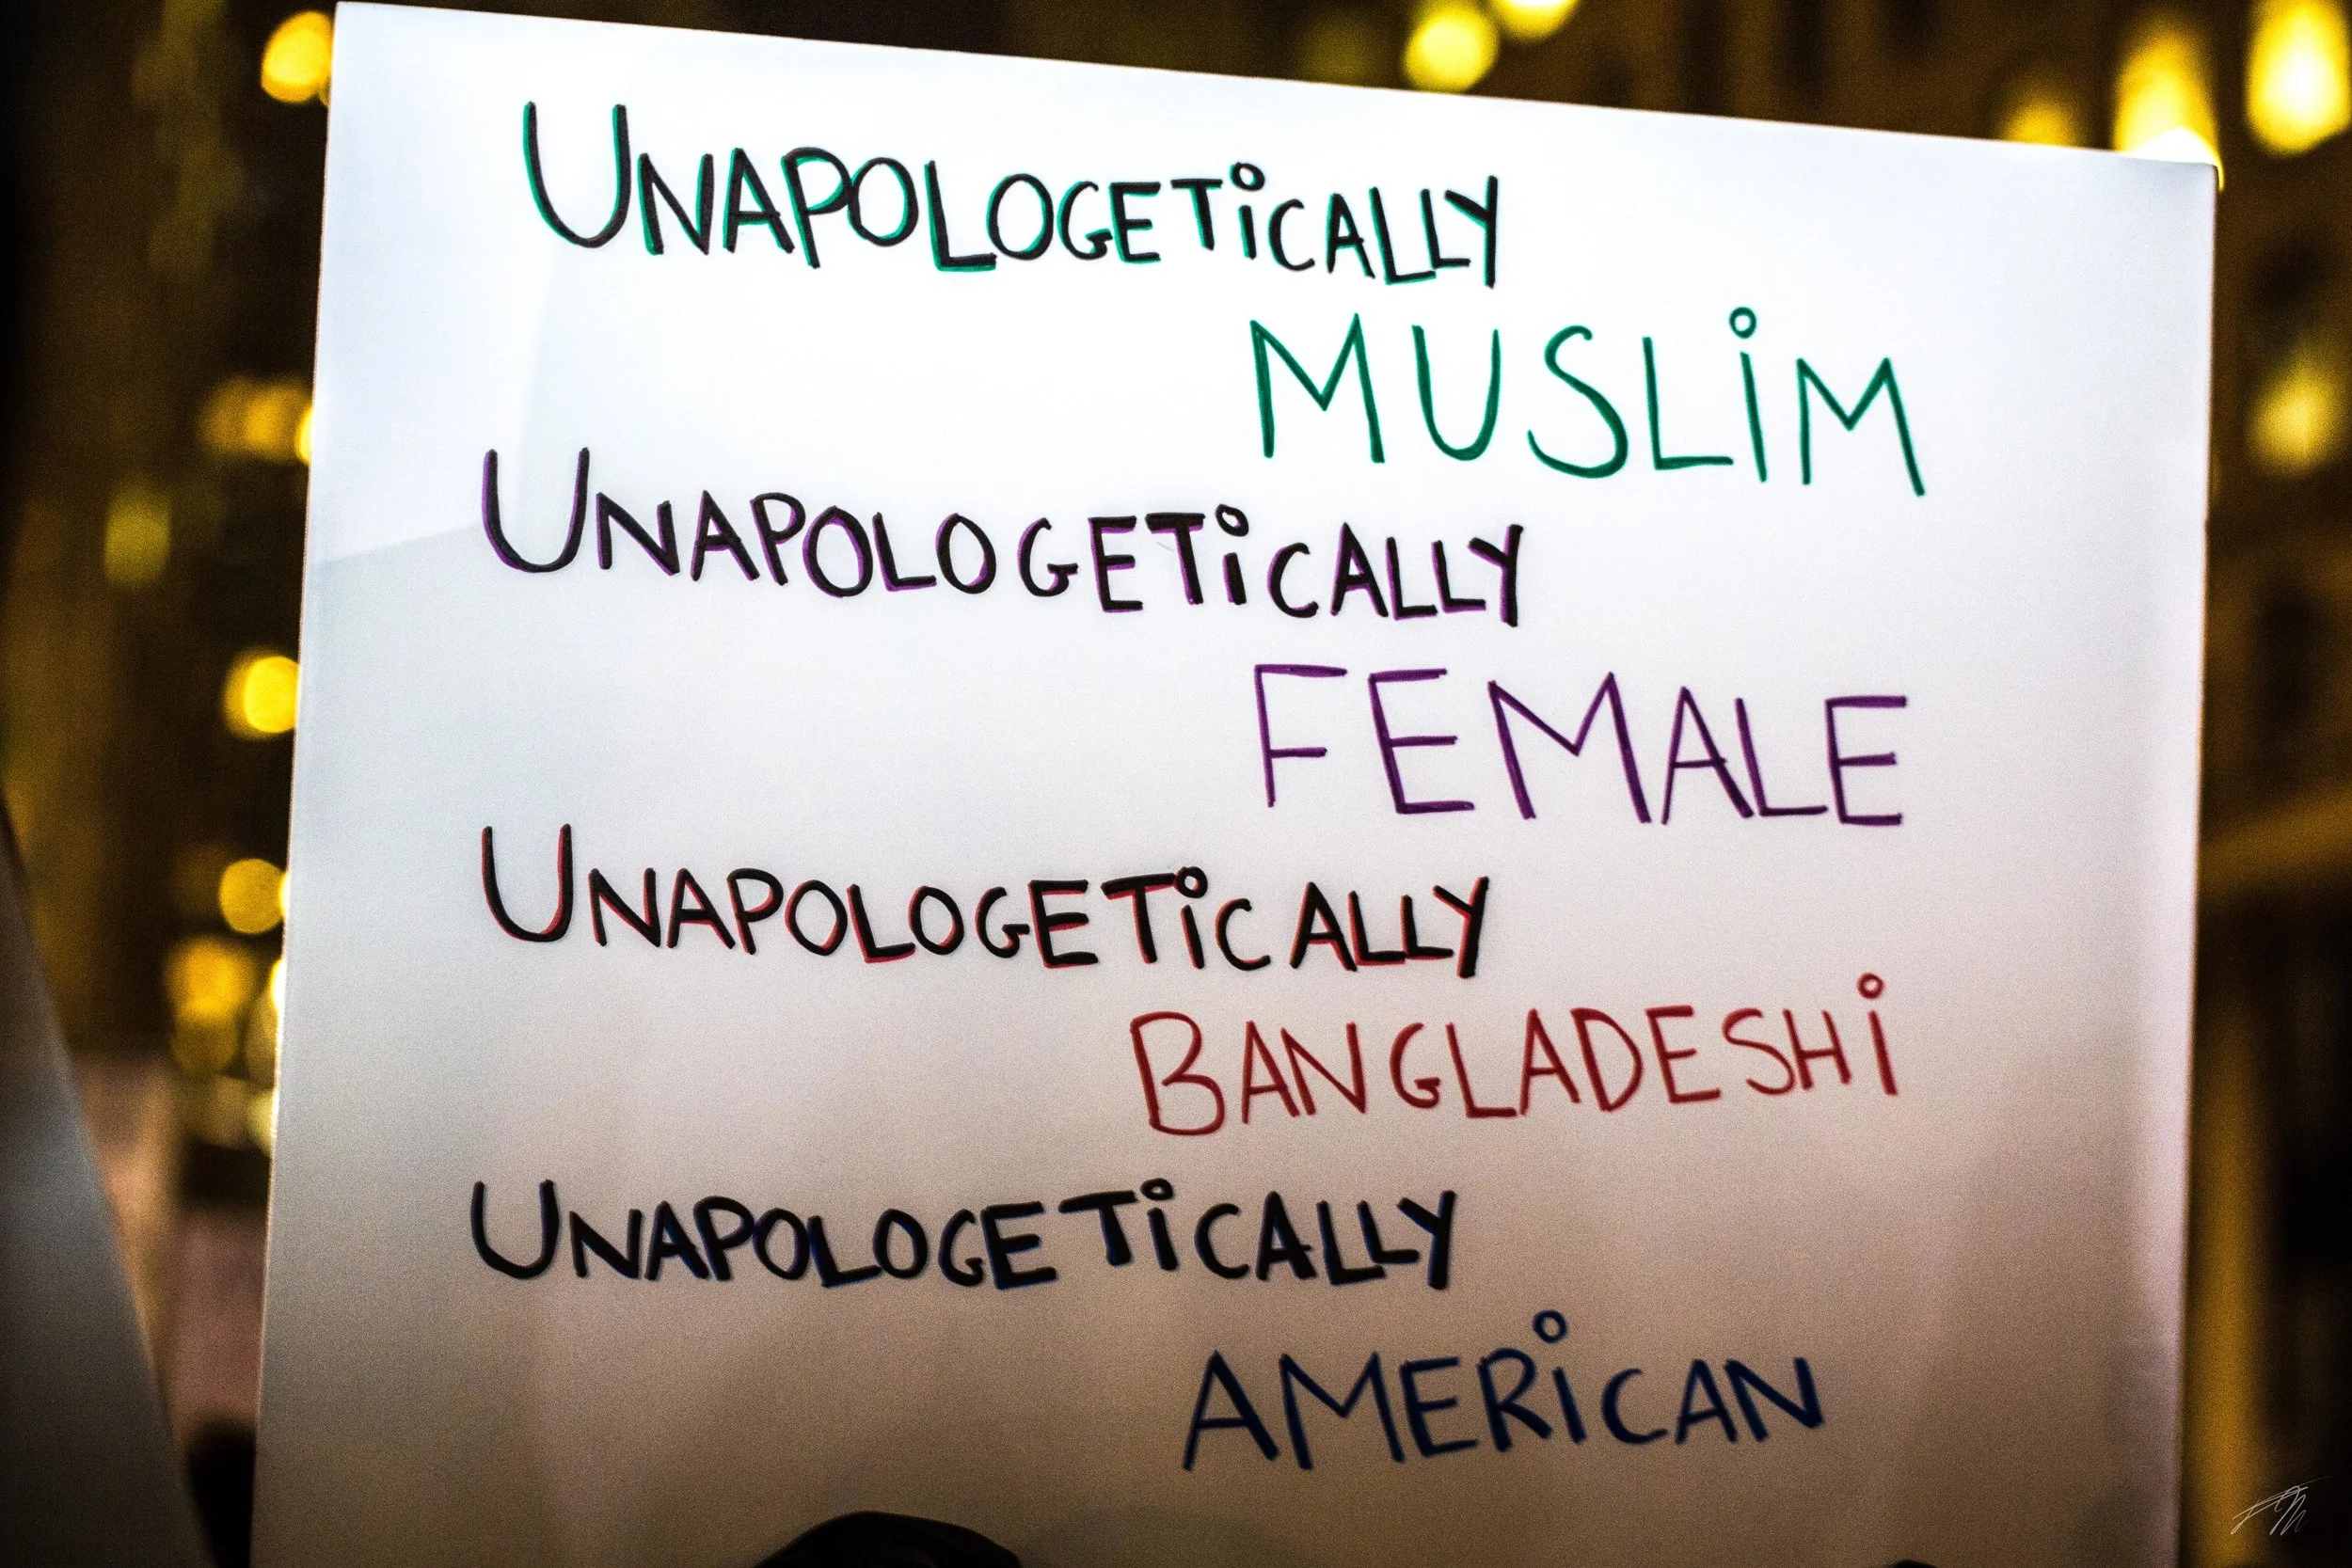 UNAPOLOGETiCALLY
MUSLiM
UNAPOLOGETiCALLY
FEMALE
UNAPOLOGETiCALLY
BANGLADESHi
UNAPOLOGETiCALLY
AMERiCAN